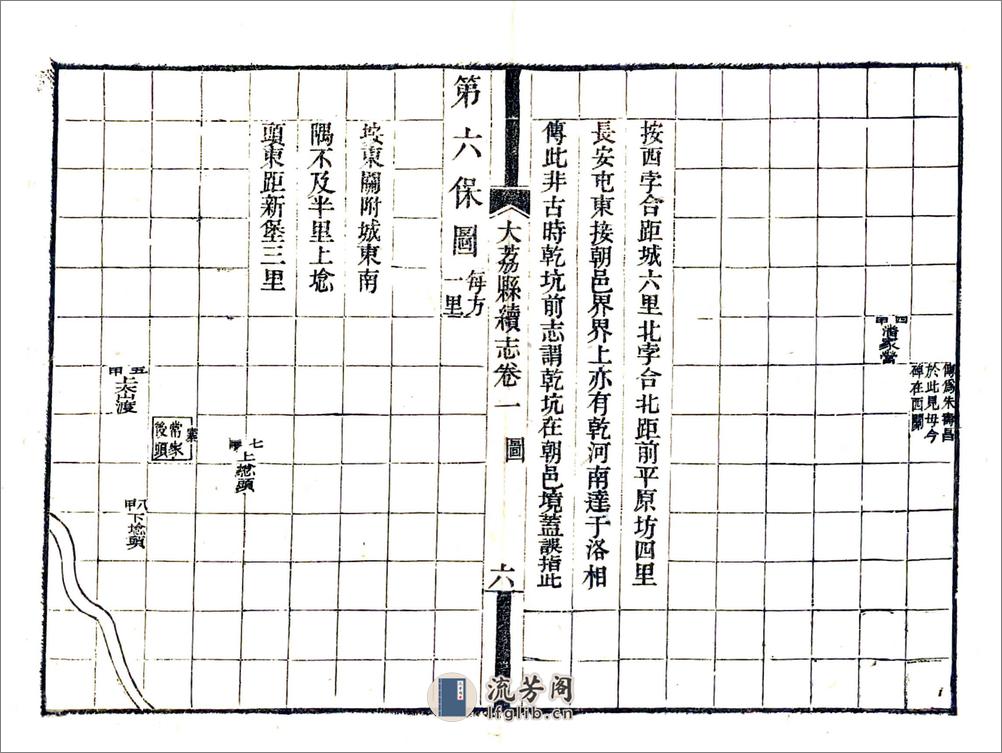 傳爲朱壽昌
於此見母今
碑在西關
四甲
潘家營
按西孛合距城六里北孛合北距前平原坊四里
長安屯東接朝邑界界上亦有乾河南達于洛相
傳此非古時乾坑前志謂乾坑在朝邑境蓋誤指此
大荔縣續志卷一
圖
六
第六保圖
每方
一里
按東關附城東南
隅不及半里上埝
頭東距新堡三里
七甲
上埝頭
寨
常家
後頭
五甲
八甲
下埝頭
流芳阁
lfglib.cn